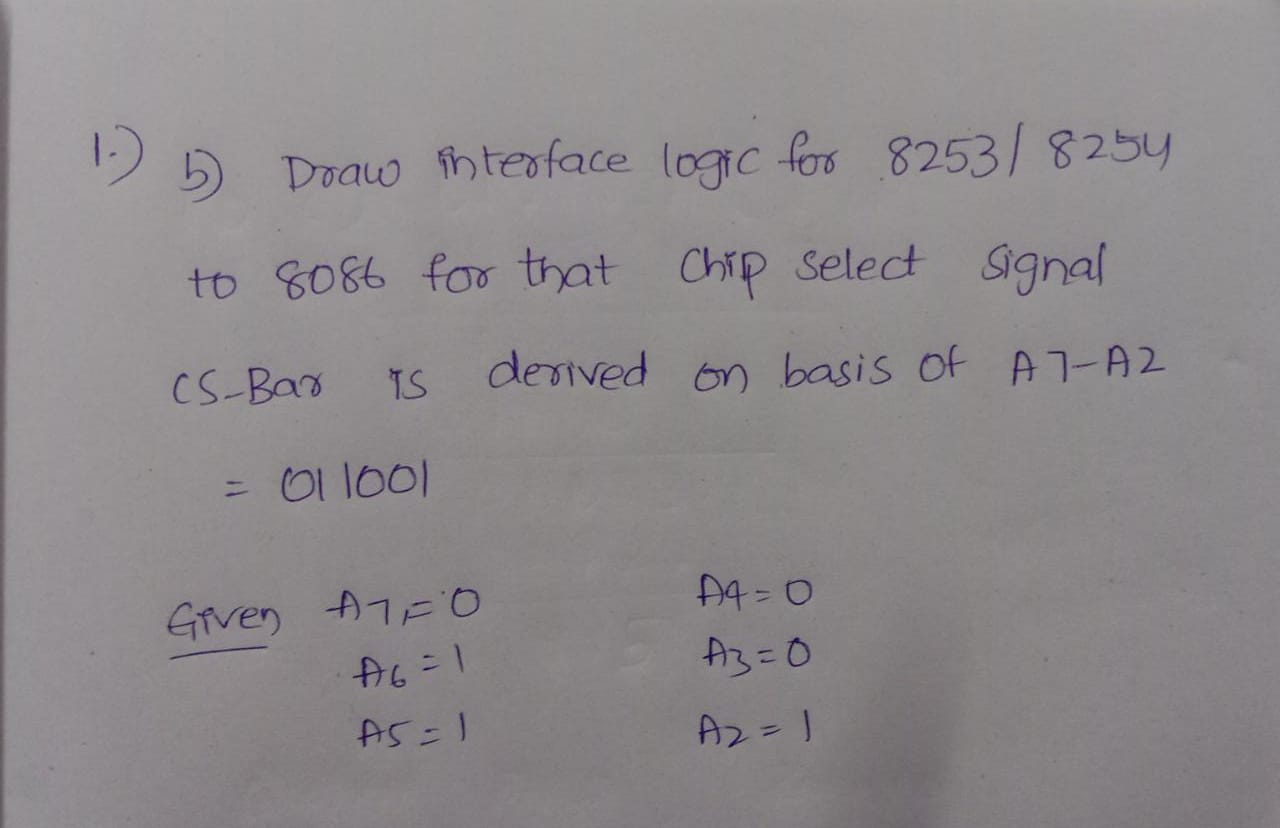 1.) b) Draw interface logic for 8253/8254
to 8086 for that Chip select signal
CS-Bar is derived on basis of A7-A2
= 011001
Given A7=0 A4=0
A6=1 A3=0
A5=1 A2=1